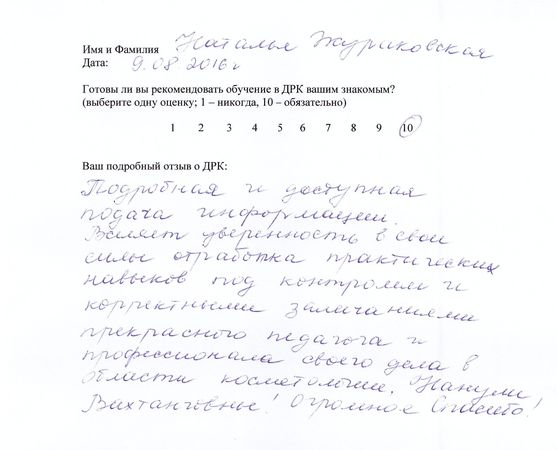 Имя и Фамилия Наталья Журиковская
Дата: 9.08.2016 г
Готовы ли вы рекомендовать обучение в ДРК вашим знакомым?
(выберите одну оценку; 1 – никогда, 10 – обязательно)
1 2 3 4 5 6 7 8 9 10
Ваш подробный отзыв о ДРК:
Подробная и доступная
подача информации.
Вселяет уверенность в свои
силы отработка практических
навыков под контролем и
корректными замечаниями
прекрасного педагога и
профессионала своего дела в
области косметологии. Нанули
Вахтанговне! Огромное Спасибо!